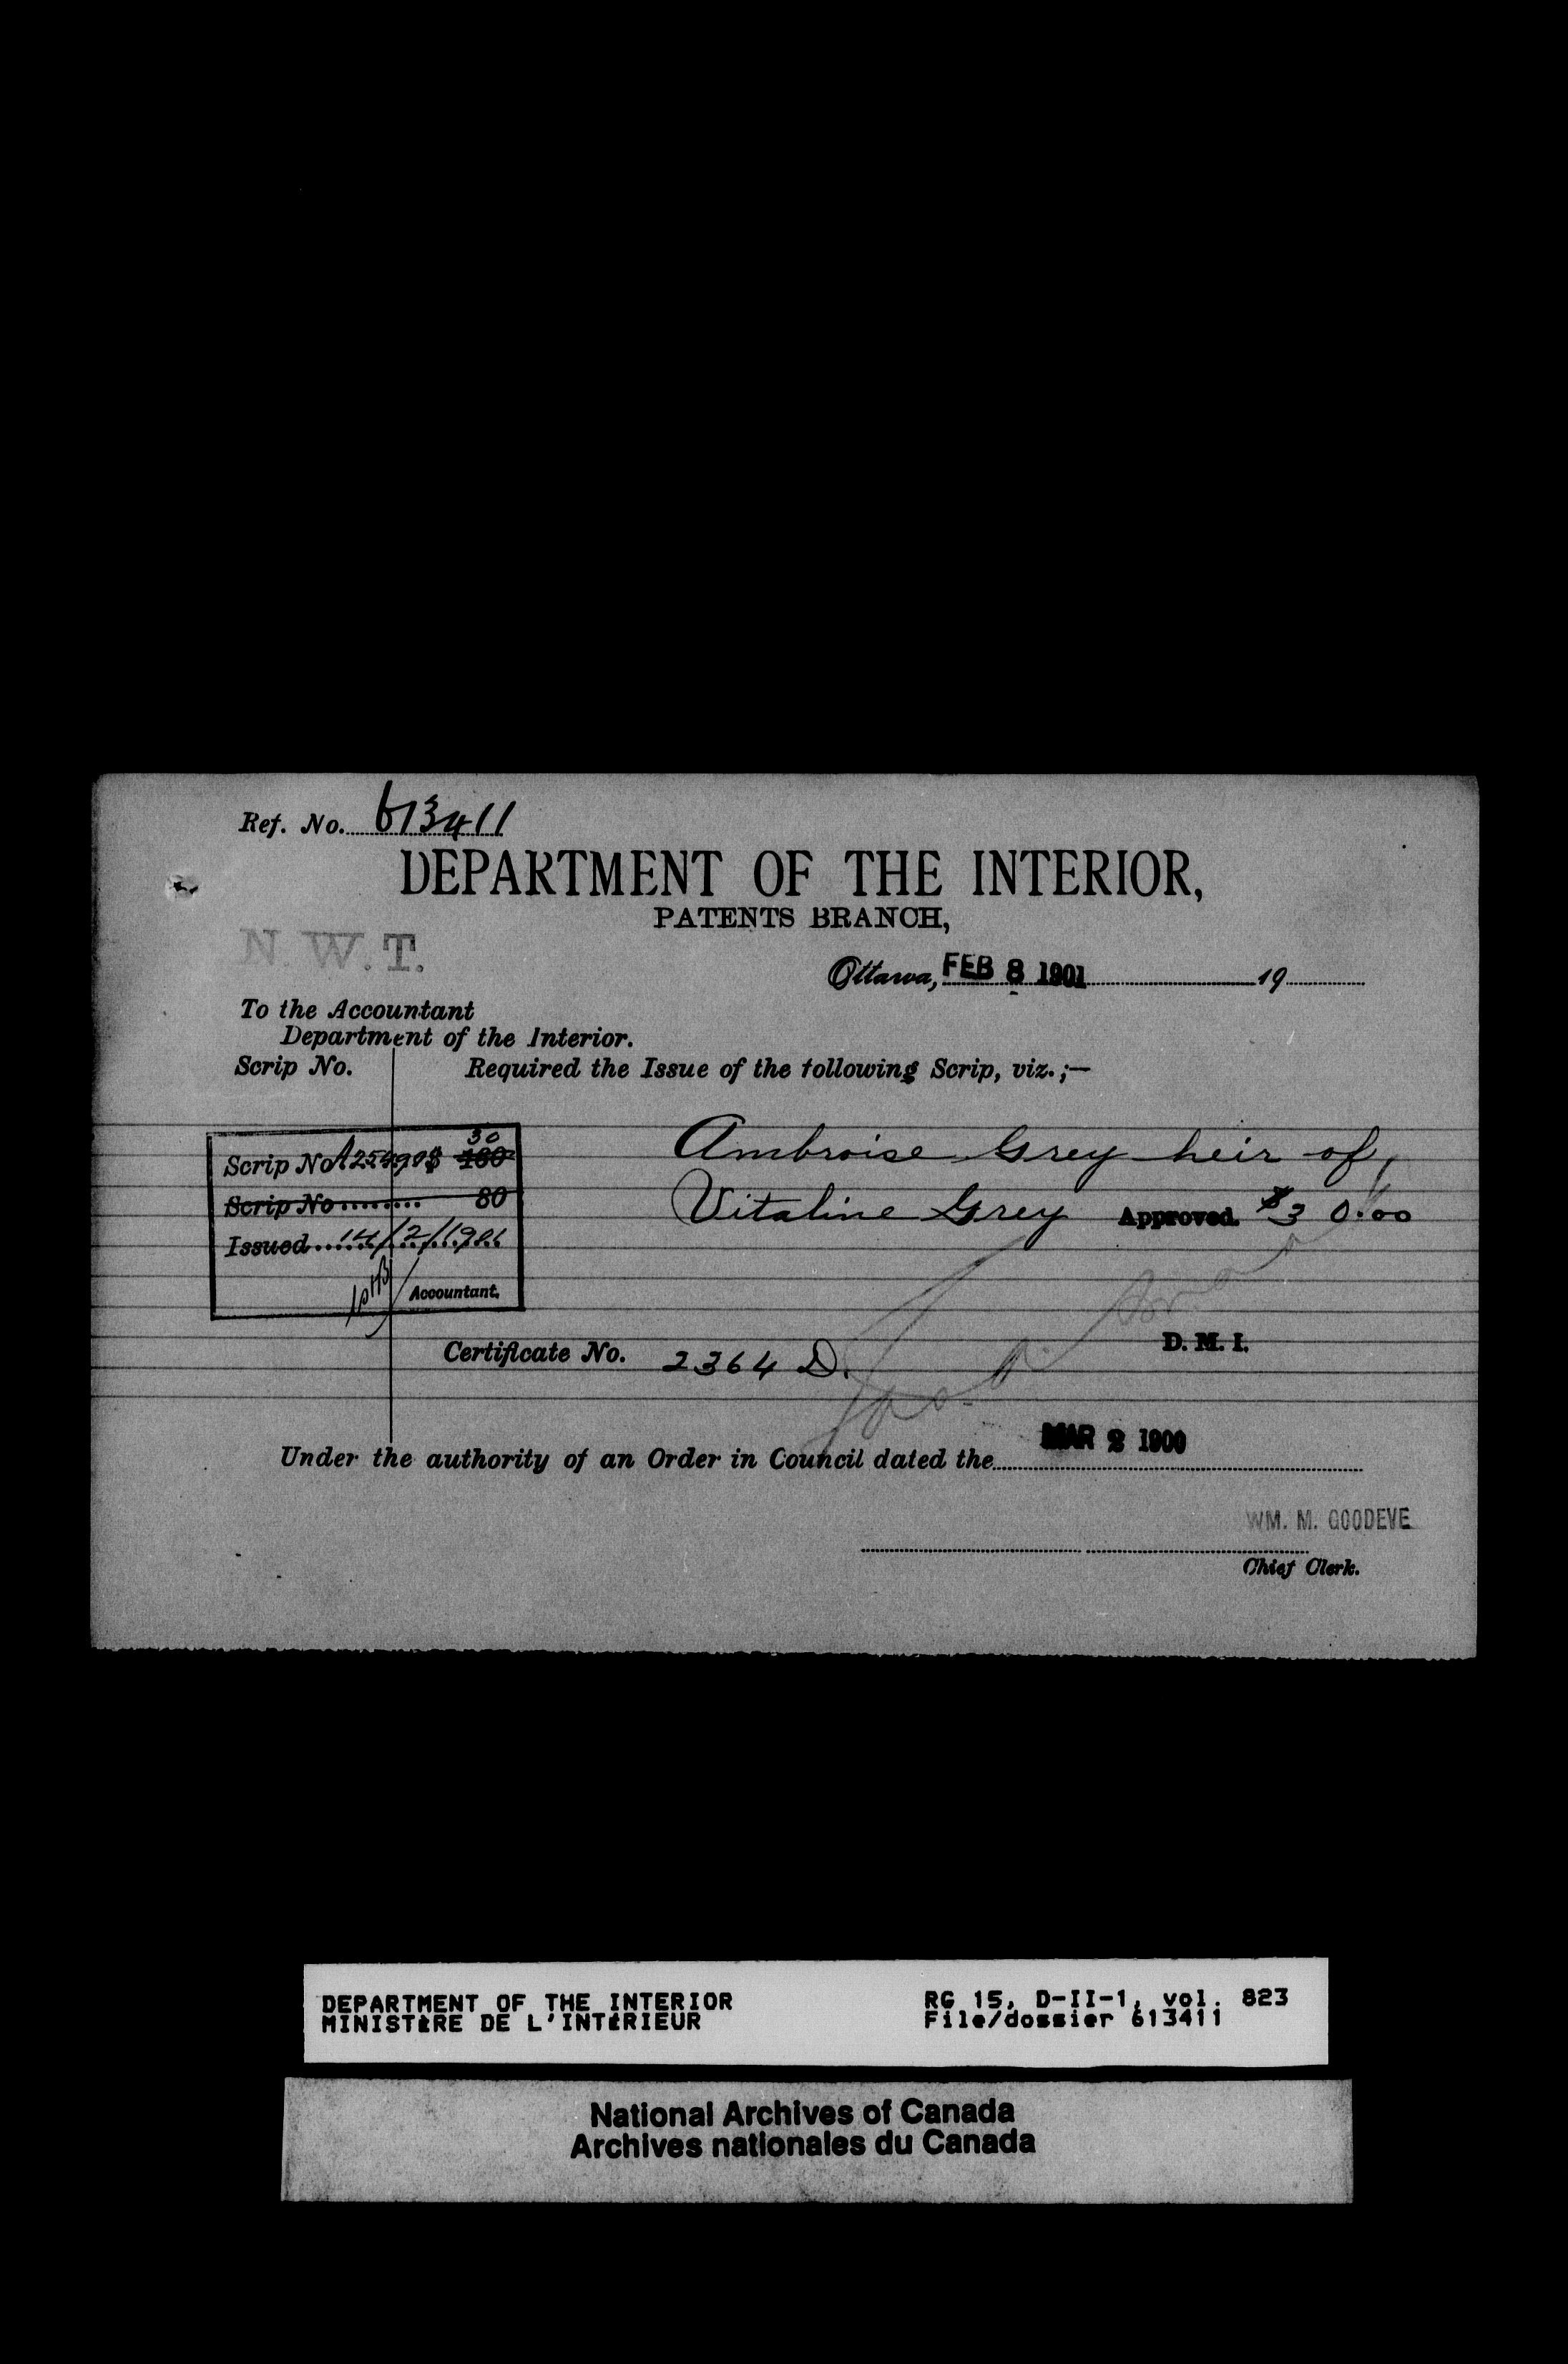 Ref. No. 613411
DEPARTMENT OF THE INTERIOR,
PATENTS BRANCH,
N. W. T.
Ottawa, FEB 8 1901 19
To the Accountant
Department of the Interior.
Scrip No. Required the Issue of the following Scrip, viz.;—
30
Scrip No A25490 $ 160
Scrip No ........ 80
Issued ..... 14/2/1901
Accountant.
Ambroise Grey heir of
Vitaline Grey Approved. $30.00
D. M. I.
Certificate No. 2364 D.
Under the authority of an Order in Council dated the MAR 2 1900
WM. M. GOODEVE
Chief Clerk.
DEPARTMENT OF THE INTERIOR RG 15, D-II-1, vol. 823
MINISTÈRE DE L'INTÉRIEUR File/dossier 613411
National Archives of Canada
Archives nationales du Canada